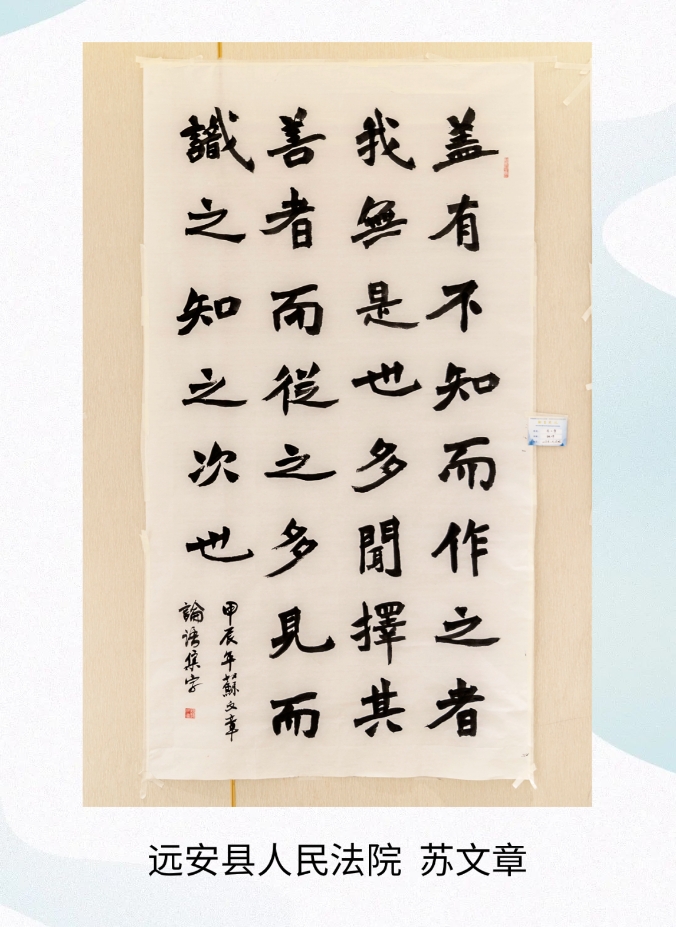 盖有不知而作之者
我無是也多聞擇其
善者而從之多見而
識之知之次也
甲辰年蘇文章
論語集字
远安县人民法院 苏文章